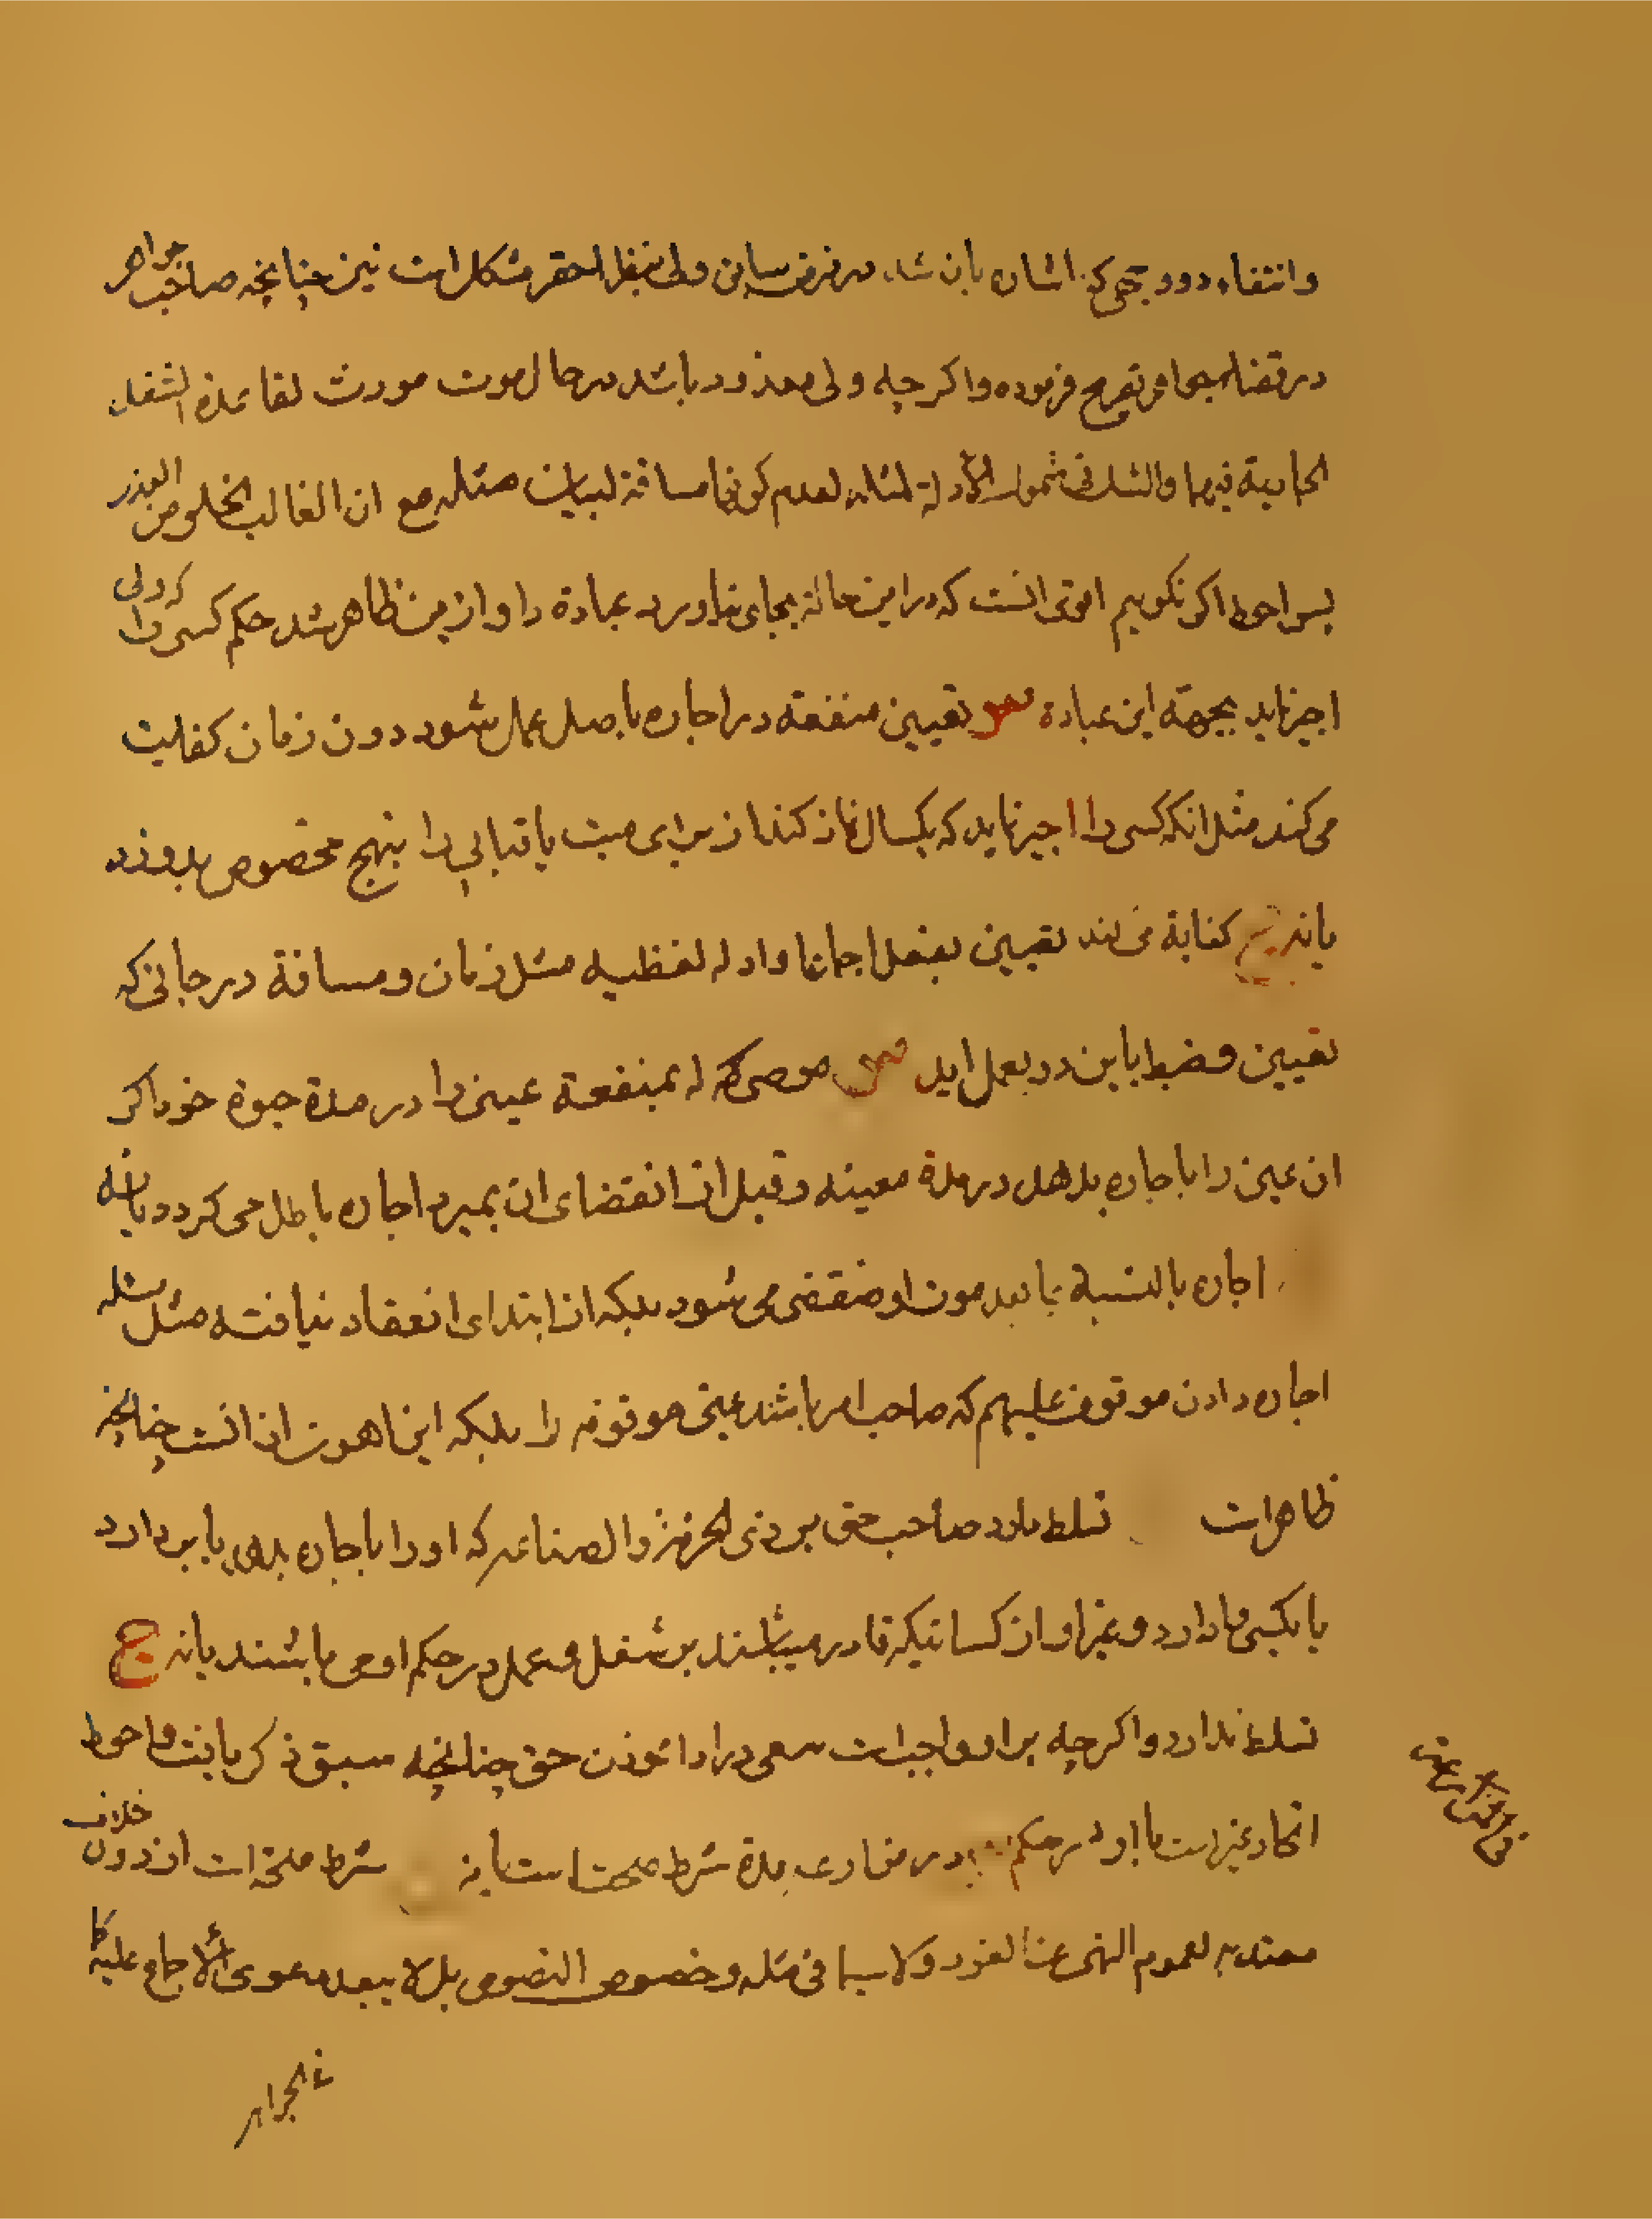 وانتفاء دوو بجی که اشاره بان شد در فرض سابق ولی بنظر احقر مشکل است نیز چنانچه صاحب جواهر
در قضا تصریح فرموده واکرچه ولی معذور باشد در حال موت مورث لقاعدة الشغل
فیها والشك فی شمول الأدلة لمثله لعدم کونها مساقة لبیان مثله مع ان الغالب الخلو من العذر
پس احوط اکر نکوییم اقوی انست که در این حالة بجای نیاورد عبادة را و از این ظاهر شد حکم کسی را که ولی
اجیر نماید بجهة این عبادة تعیین منفعة در اجاره باصل عمل شود دون زمان کفایت
می کند مثل انکه کسی را اجیر نماید که یکسال نماز کند از برای میت یا قبایی را بنهج مخصوص بدوزد
یا نه کفایة می کند تعیین بفعل اجماعا وادله لفظیه مثل زمان ومسافة در جائی که
تعیین وضبط باین دو بعمل اید موصی له بمنفعة عینی را در مدة حیوة خود اکر
ان عین را باجاره بدهد در مدة معینه وقبل از انقضای ان بمیرد اجاره باطل می کردد یا نه
اجاره بالنسبة بما بعد موت او منقضی می شود بلکه از ابتدای انعقاد نیافته مثل مسئله
اجاره دادن موقوف علیهم که صاحب امر باشند عین موقوفه را بلکه این اهون از انست چنانچه
ظاهر است تسلط دارد صاحب حق بر ذی الحرفة والصناعه که او را باجاره بدهد یا بر دارد
یا بکسی وا دارد و غیر او از کسانیکه قادر میباشند بر شغل و عمل در حکم او می باشند یا نه ج
تسلط ندارد واکرچه بر او واجب است سعی در ادا نمودن حق چنانچه سبق ذکر یافت واحوط
اتحاد غیر است با او در حکم در مزارعه مدة شرط صحت است یا نه شرط صحة است از دون خلاف
معتد به لعموم النهی عن الغرر ولا سیما فی مثله وخصوص النصوص بل لا یبعد دعوی الاجماع علیه کما
فی الجواهر